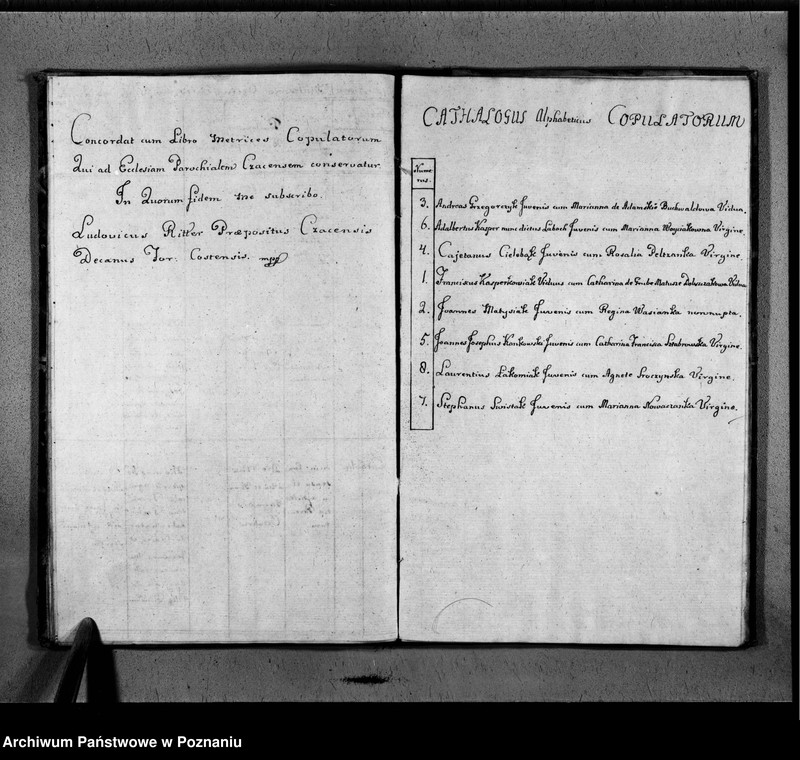 Concordat cum Libro Metrices Copulatorum
Qui ad Ecclesiam Parochialem Czacensem conservatur
In Quorum fidem me subscribo.
Ludovicus Ritter Præpositus Czacensis
Decanus For. Costensis. mpp
CATHALOGUS Alphabeticus COPULATORUM
Nume
rus.
3. Andreas Grzegorczyk Juvenis cum Marianna de Adamskie Buchwaldowa Vidua.
6. Adalbertus Kasper nunc dictus Juvenis cum Marianna Virgine.
4. Cajetanus Juvenis cum Rosalia Peltzanka Virgine.
1. Franciscus Kasperkowiak Viduus cum Catharina de Matusze Vidua
2. Joannes Matysiak Juvenis cum Regina Wasianka nonnupta.
5. Joannes Josephus Kankowski Juvenis cum Catharina Francisca Virgine.
8. Laurentius Łakomiak Juvenis cum Agnete Sroczynska Virgine.
7. Stephanus Swistak Juvenis cum Marianna Nowaczanka Virgine.
Archiwum Państwowe w Poznaniu